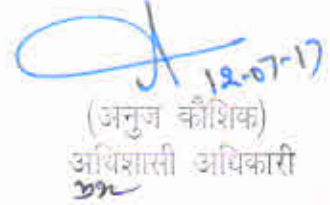 12-07-17
(अनुज कौशिक)
अधिशासी अधिकारी